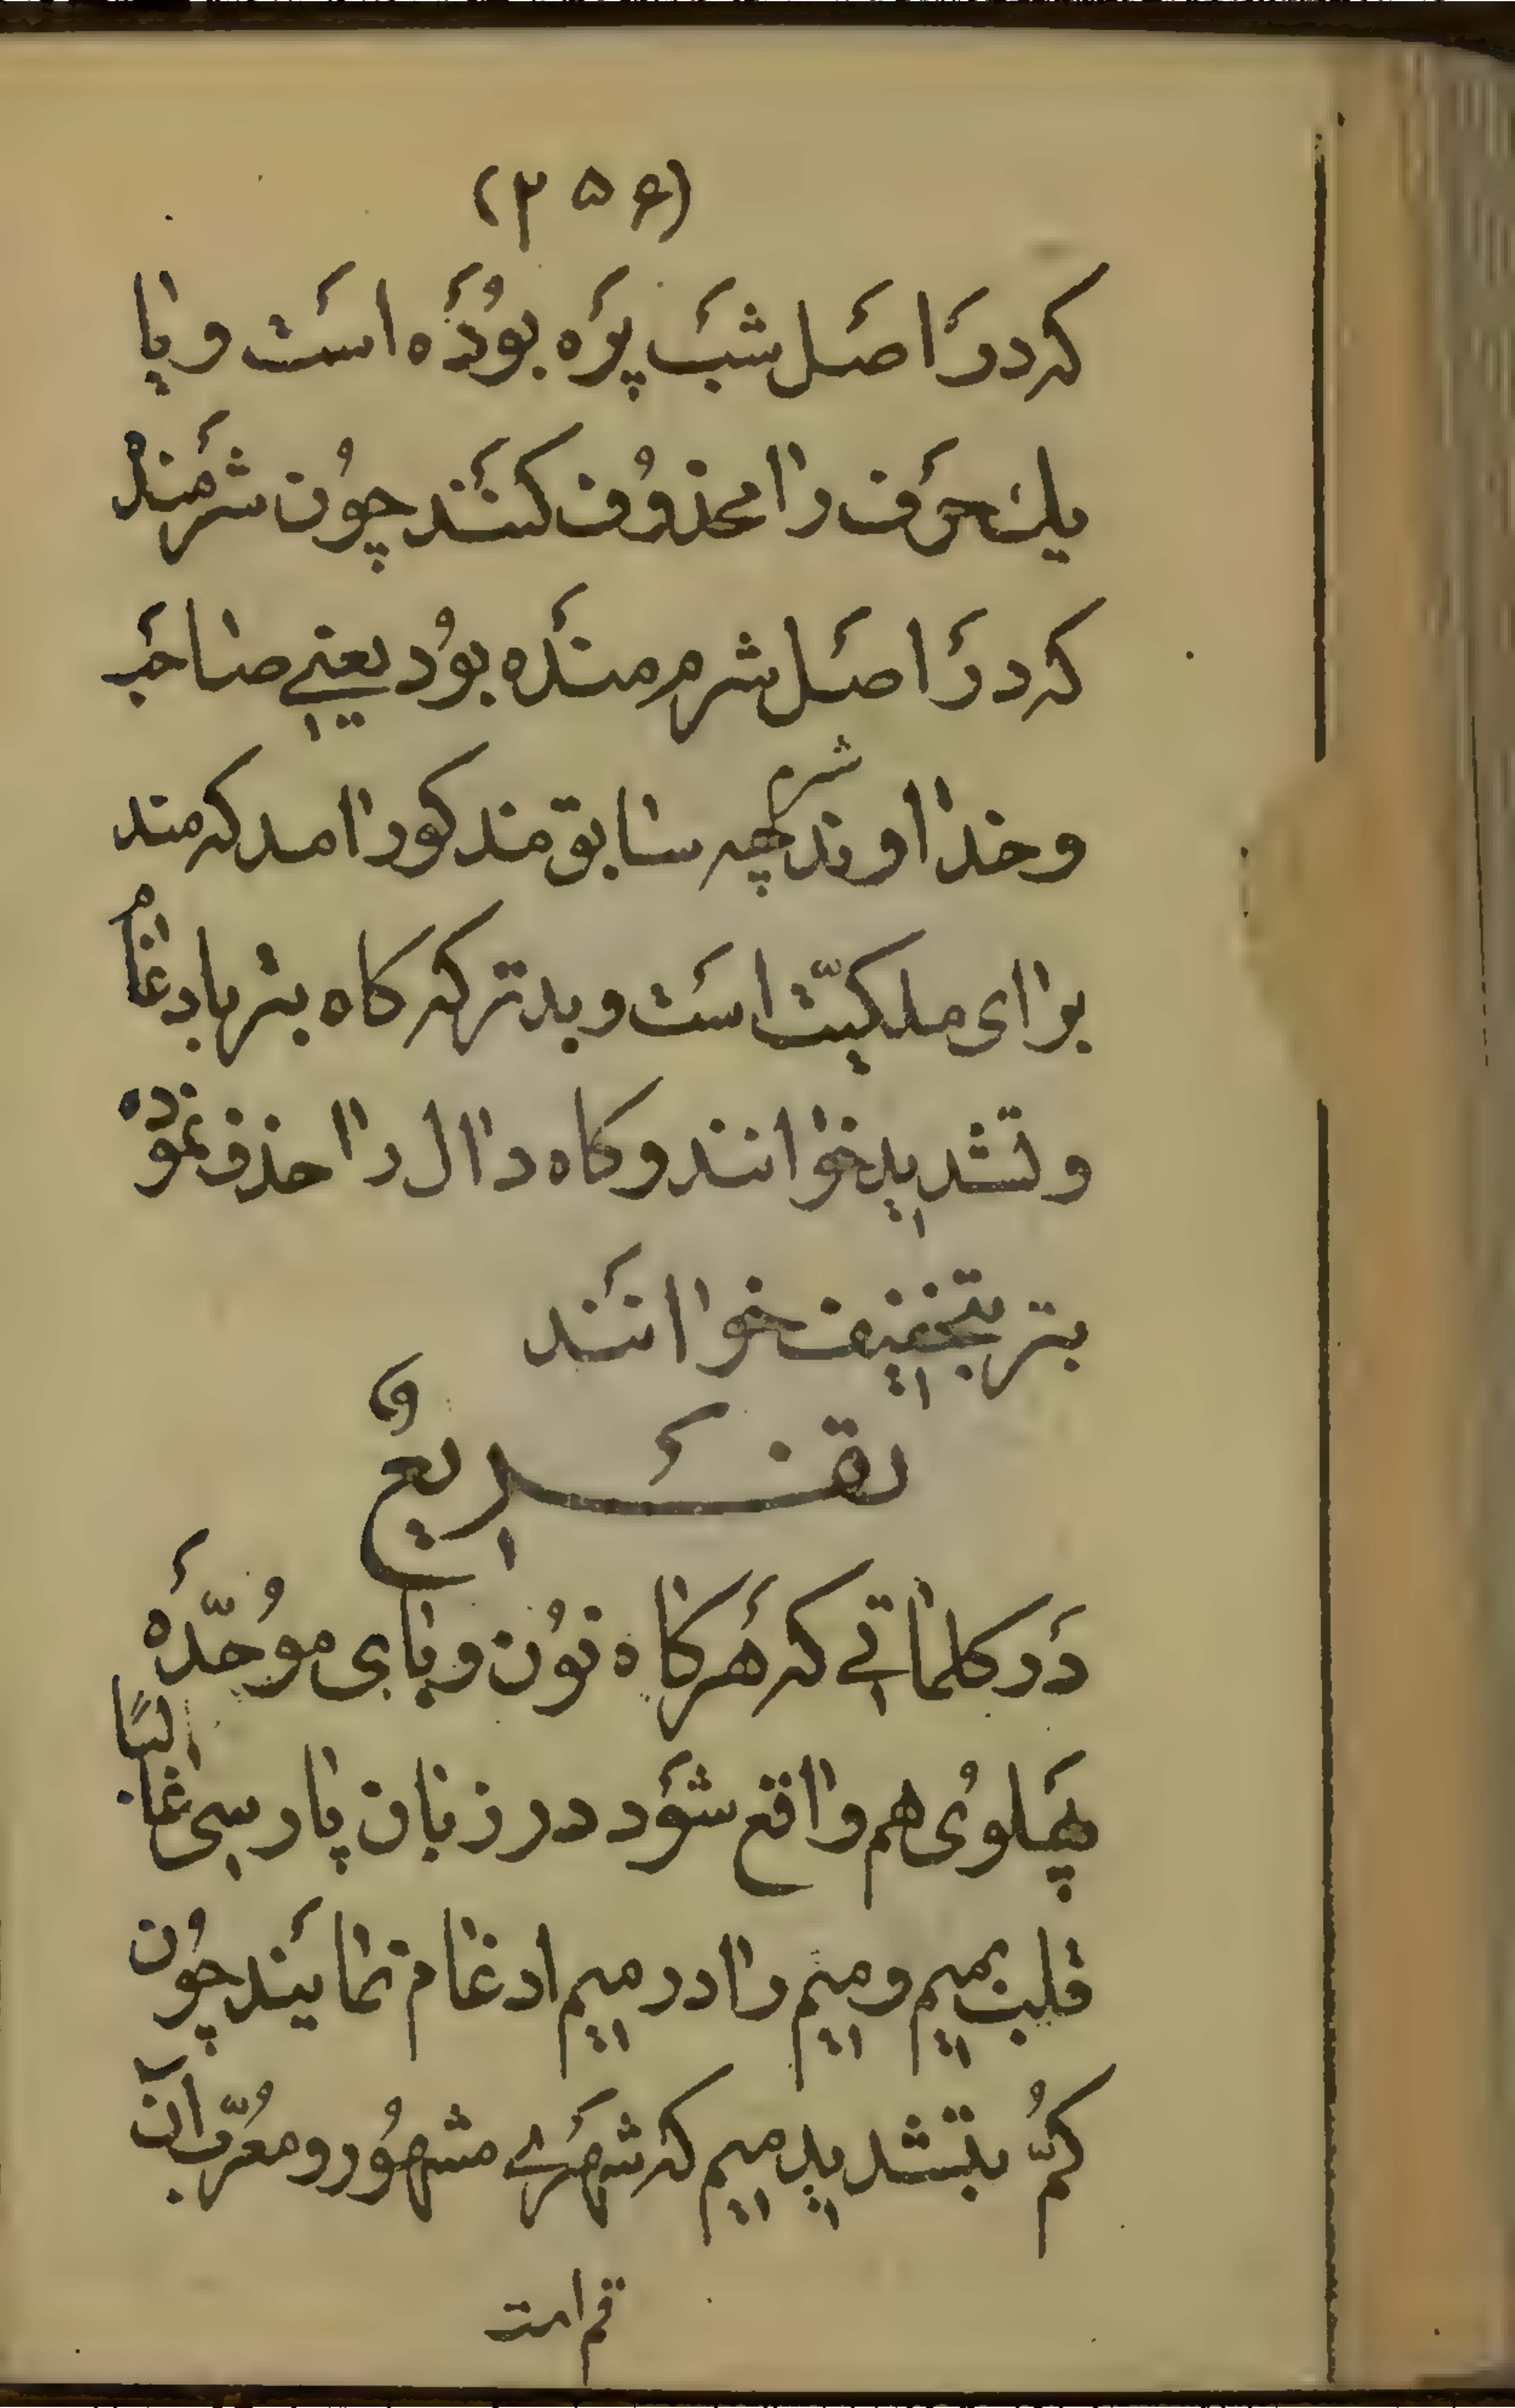 (۳۵۶)
که دَر اصَل شبَ پرَه بوُدَه استَ و یا
یک حرَف را محذوُف کننَد چوُن شرمَنده
که در اصَل شرم مندَه بوُد یعنی صاحَب
و خداوند شرم چه سابق مذکور امد که مند
برای ملکیّت استَ و بدتر که کاه بتر بادغام
و تشدید خوانند و کاه دال را حذف نموده
بتر بتخفیف خواننَد
تفَریعٌ
دَر کلماتی که هَرکاه نوُن و بای موُحّدَه
پهَلوُی هم واقع شوَد در زبان پارسی غالبًا
قلب بمیم و میم را در میم ادغام نمایَند چوُن
کُمّ بتشدید میم که شهرَی مشهوُر و معُرّب آن
قم است